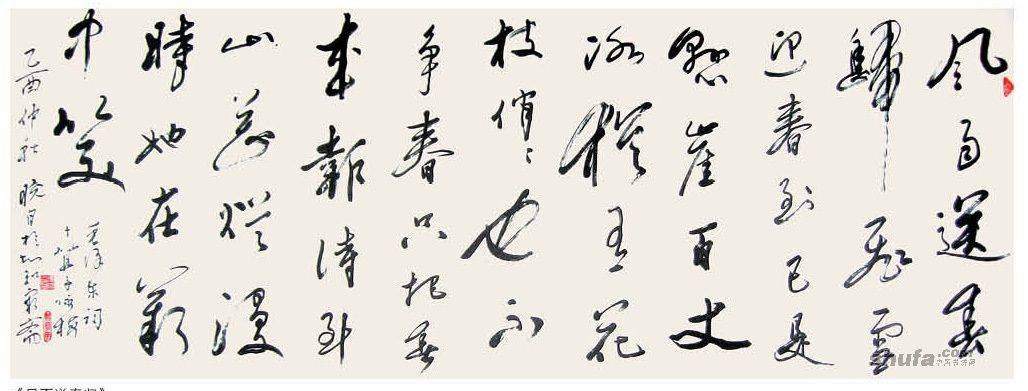 风雨送春
歸飛雪
迎春到已是
懸崖百丈
冰猶有花
枝俏々也不
争春只把春
来報待到
山花爛漫
時她在叢
中笑
毛泽东词
卜算子咏梅
乙酉仲秋
shufa.com